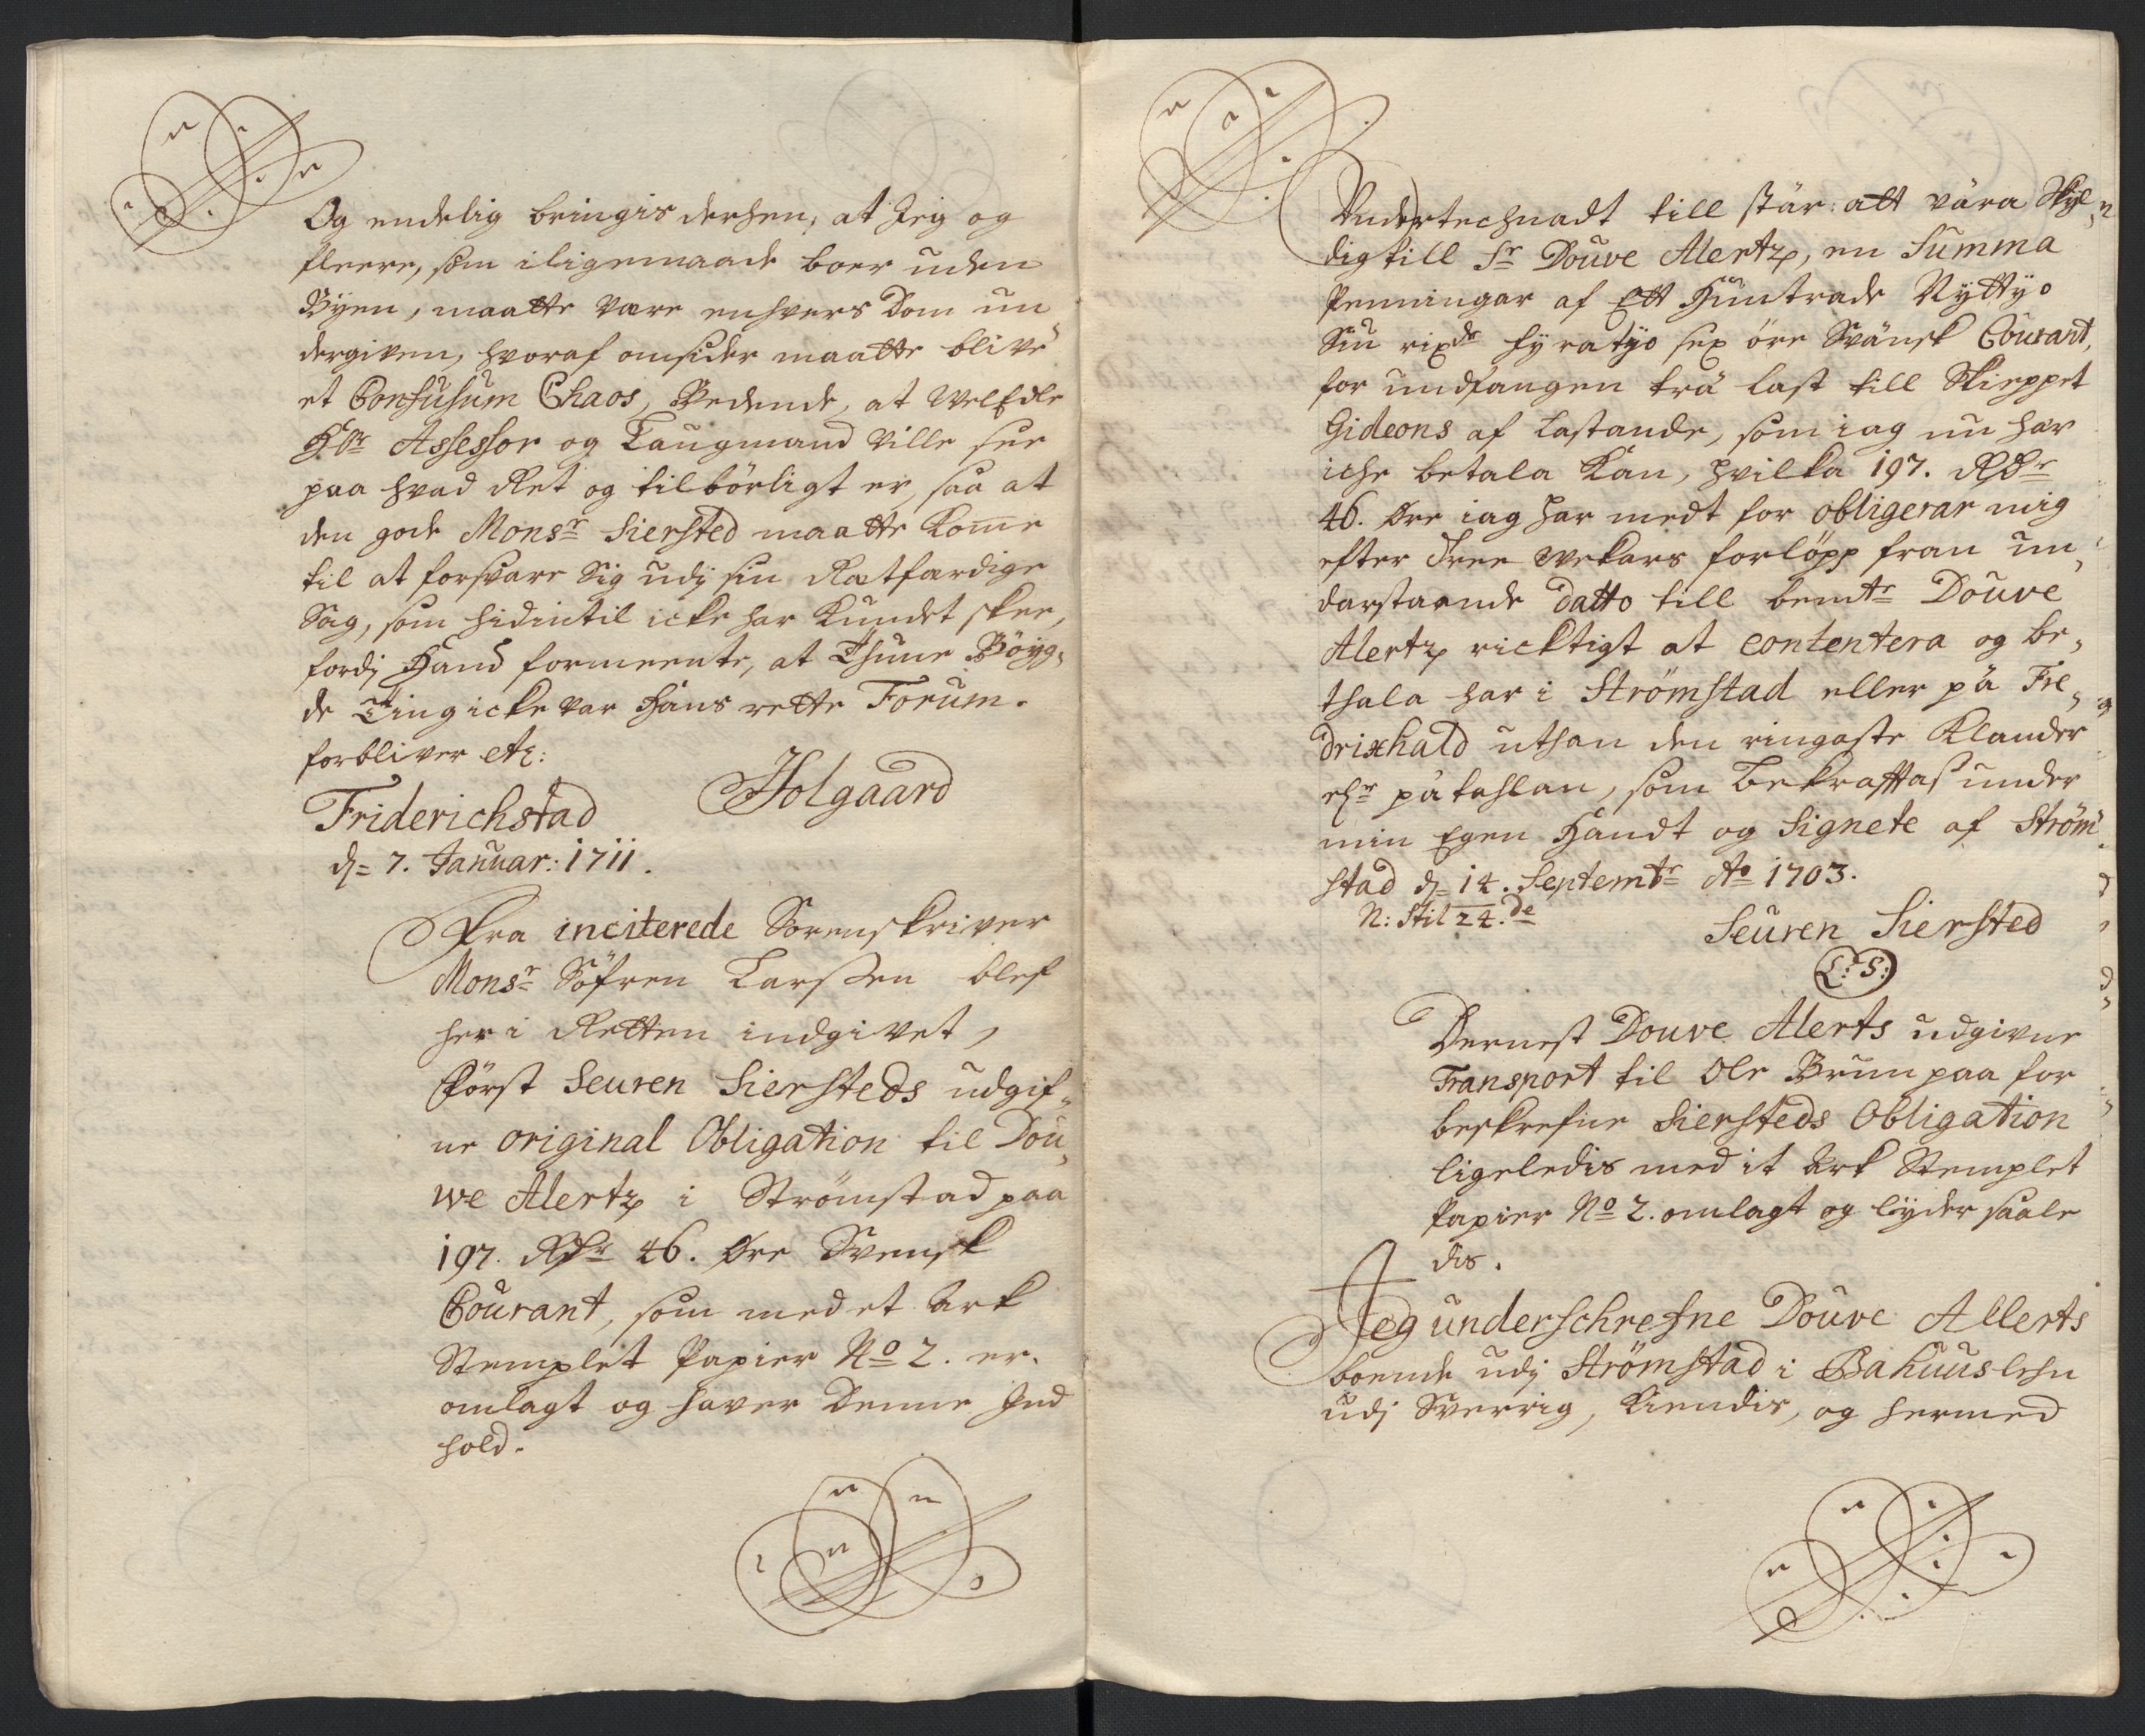 Og endelig bringis derhen, at Jeg og
fleere, som iligemaade boer uden
Byen, maatte være enhvers Dom un
dergiven, hvoraf omsider maatte blive
et Confusum Chaos, Bedende, at WelEdle
Hr Assessor og Laugmand Ville see
paa hvad Ret og tilbörligt er, saa at
den gode Monsr Siersted maatte Komme
til at forsvare Sig udj sin Rætfærdige
Sag, som hidintil icke har Kundet skee,
fordj Hand formeente, at Thune Böyg,
de Ting icke var Hans rette Forum.
forbliver etc:
Holgaard
Friderichstad
d= 7. Januar: 1711.
Fra inciterede Sorenskriver
Monsr Söfren Larssen blef
her i Retten indgivet,
Först Seuren Siersteds udgif,
ne original Obligation til Dou,
we Alertz i Strömstad paa
197. Rdr 46. Øre Svensk
Courant, som med et Ark
Stemplet Papier No 2. er
omlagt og haver Denne Ind
hold.
Undertechnadt till står att våra Skyl,
dig till Sr Douve Alertz, en Summa
Penningar af Ett Huntrade Nyttyo
Siu rixdr fyratyo sex öre Svänsk Courant,
for undfangen trä last till Skieppet
Gideons af Lastande, som iag nu har
iche betala Kan, hvilka 197. Rdr
46. Øre iag har medt for obligerar mig
efter Tree wekars forlöpp fran un,
darstaende Datto till bemte Douve
Alertz ricktigt at contentera og be,
thala har i Strömstad eller på Fre,
drixhald uthan den ringaste Klander
elr påtahlan, som bekrafftas under
min Egen Handt og Signete af Ström
stad d= 14. Septembr Ao 1703.
N: Stil 24.de
Seuren Siersted
L: S:
Dernest Douve Alerts udgivne
Transport til Ole Brun paa for
beskrefne Siersteds Obligation
ligeledis med it Ark Stemplet
Papier No 2. omlagt og lyder saale
dis.
Jeg underschrefne Douve Allerts
boende udj Strömstad i Bahuus lehn
udj Sverrig, Kiendis, og hermed